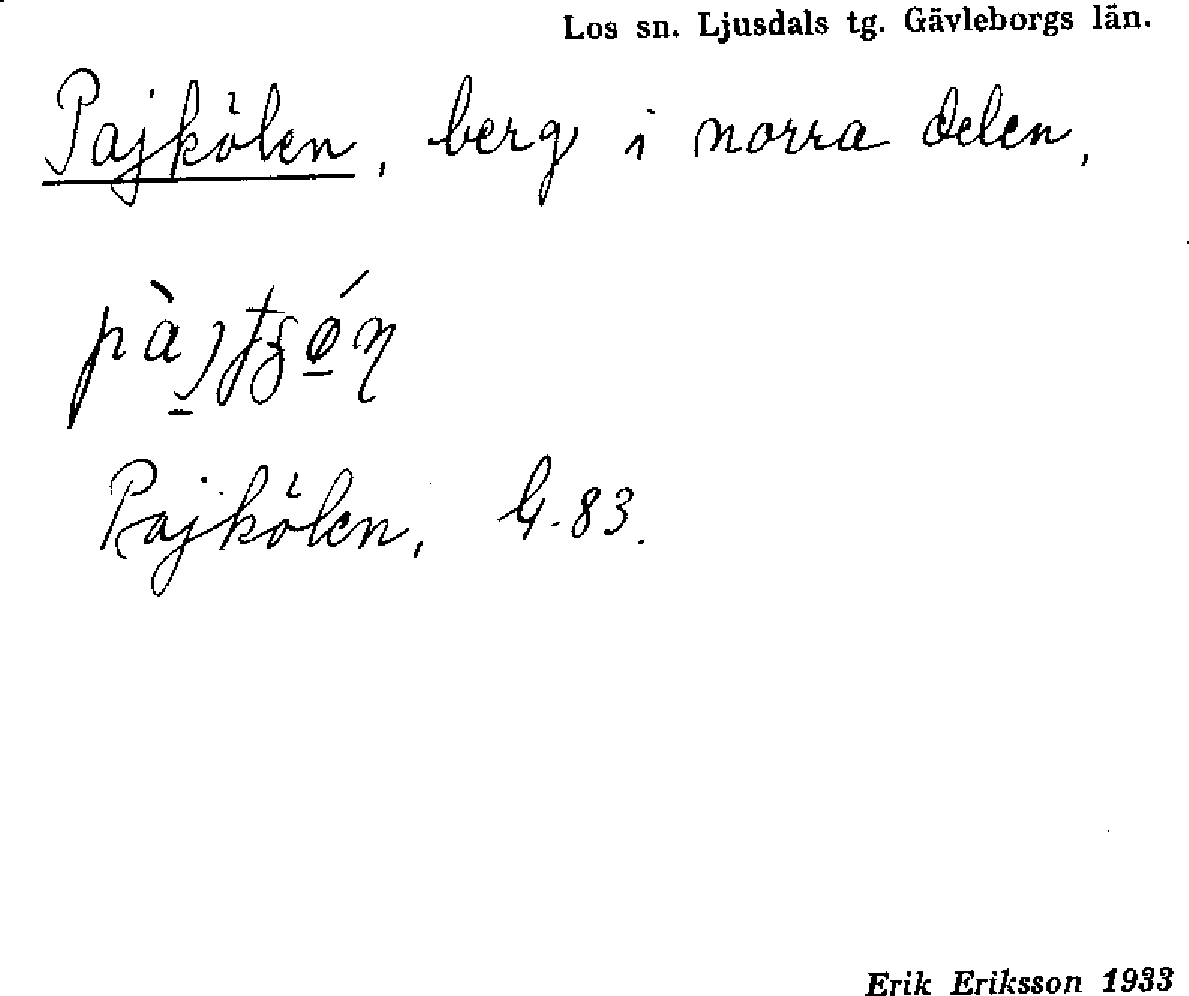 Los sn. Ljusdals tg. Gävleborgs län.
Pajkölen, berg i norra delen,
Rajkölen, G. 83.
Erik Eriksson 1933